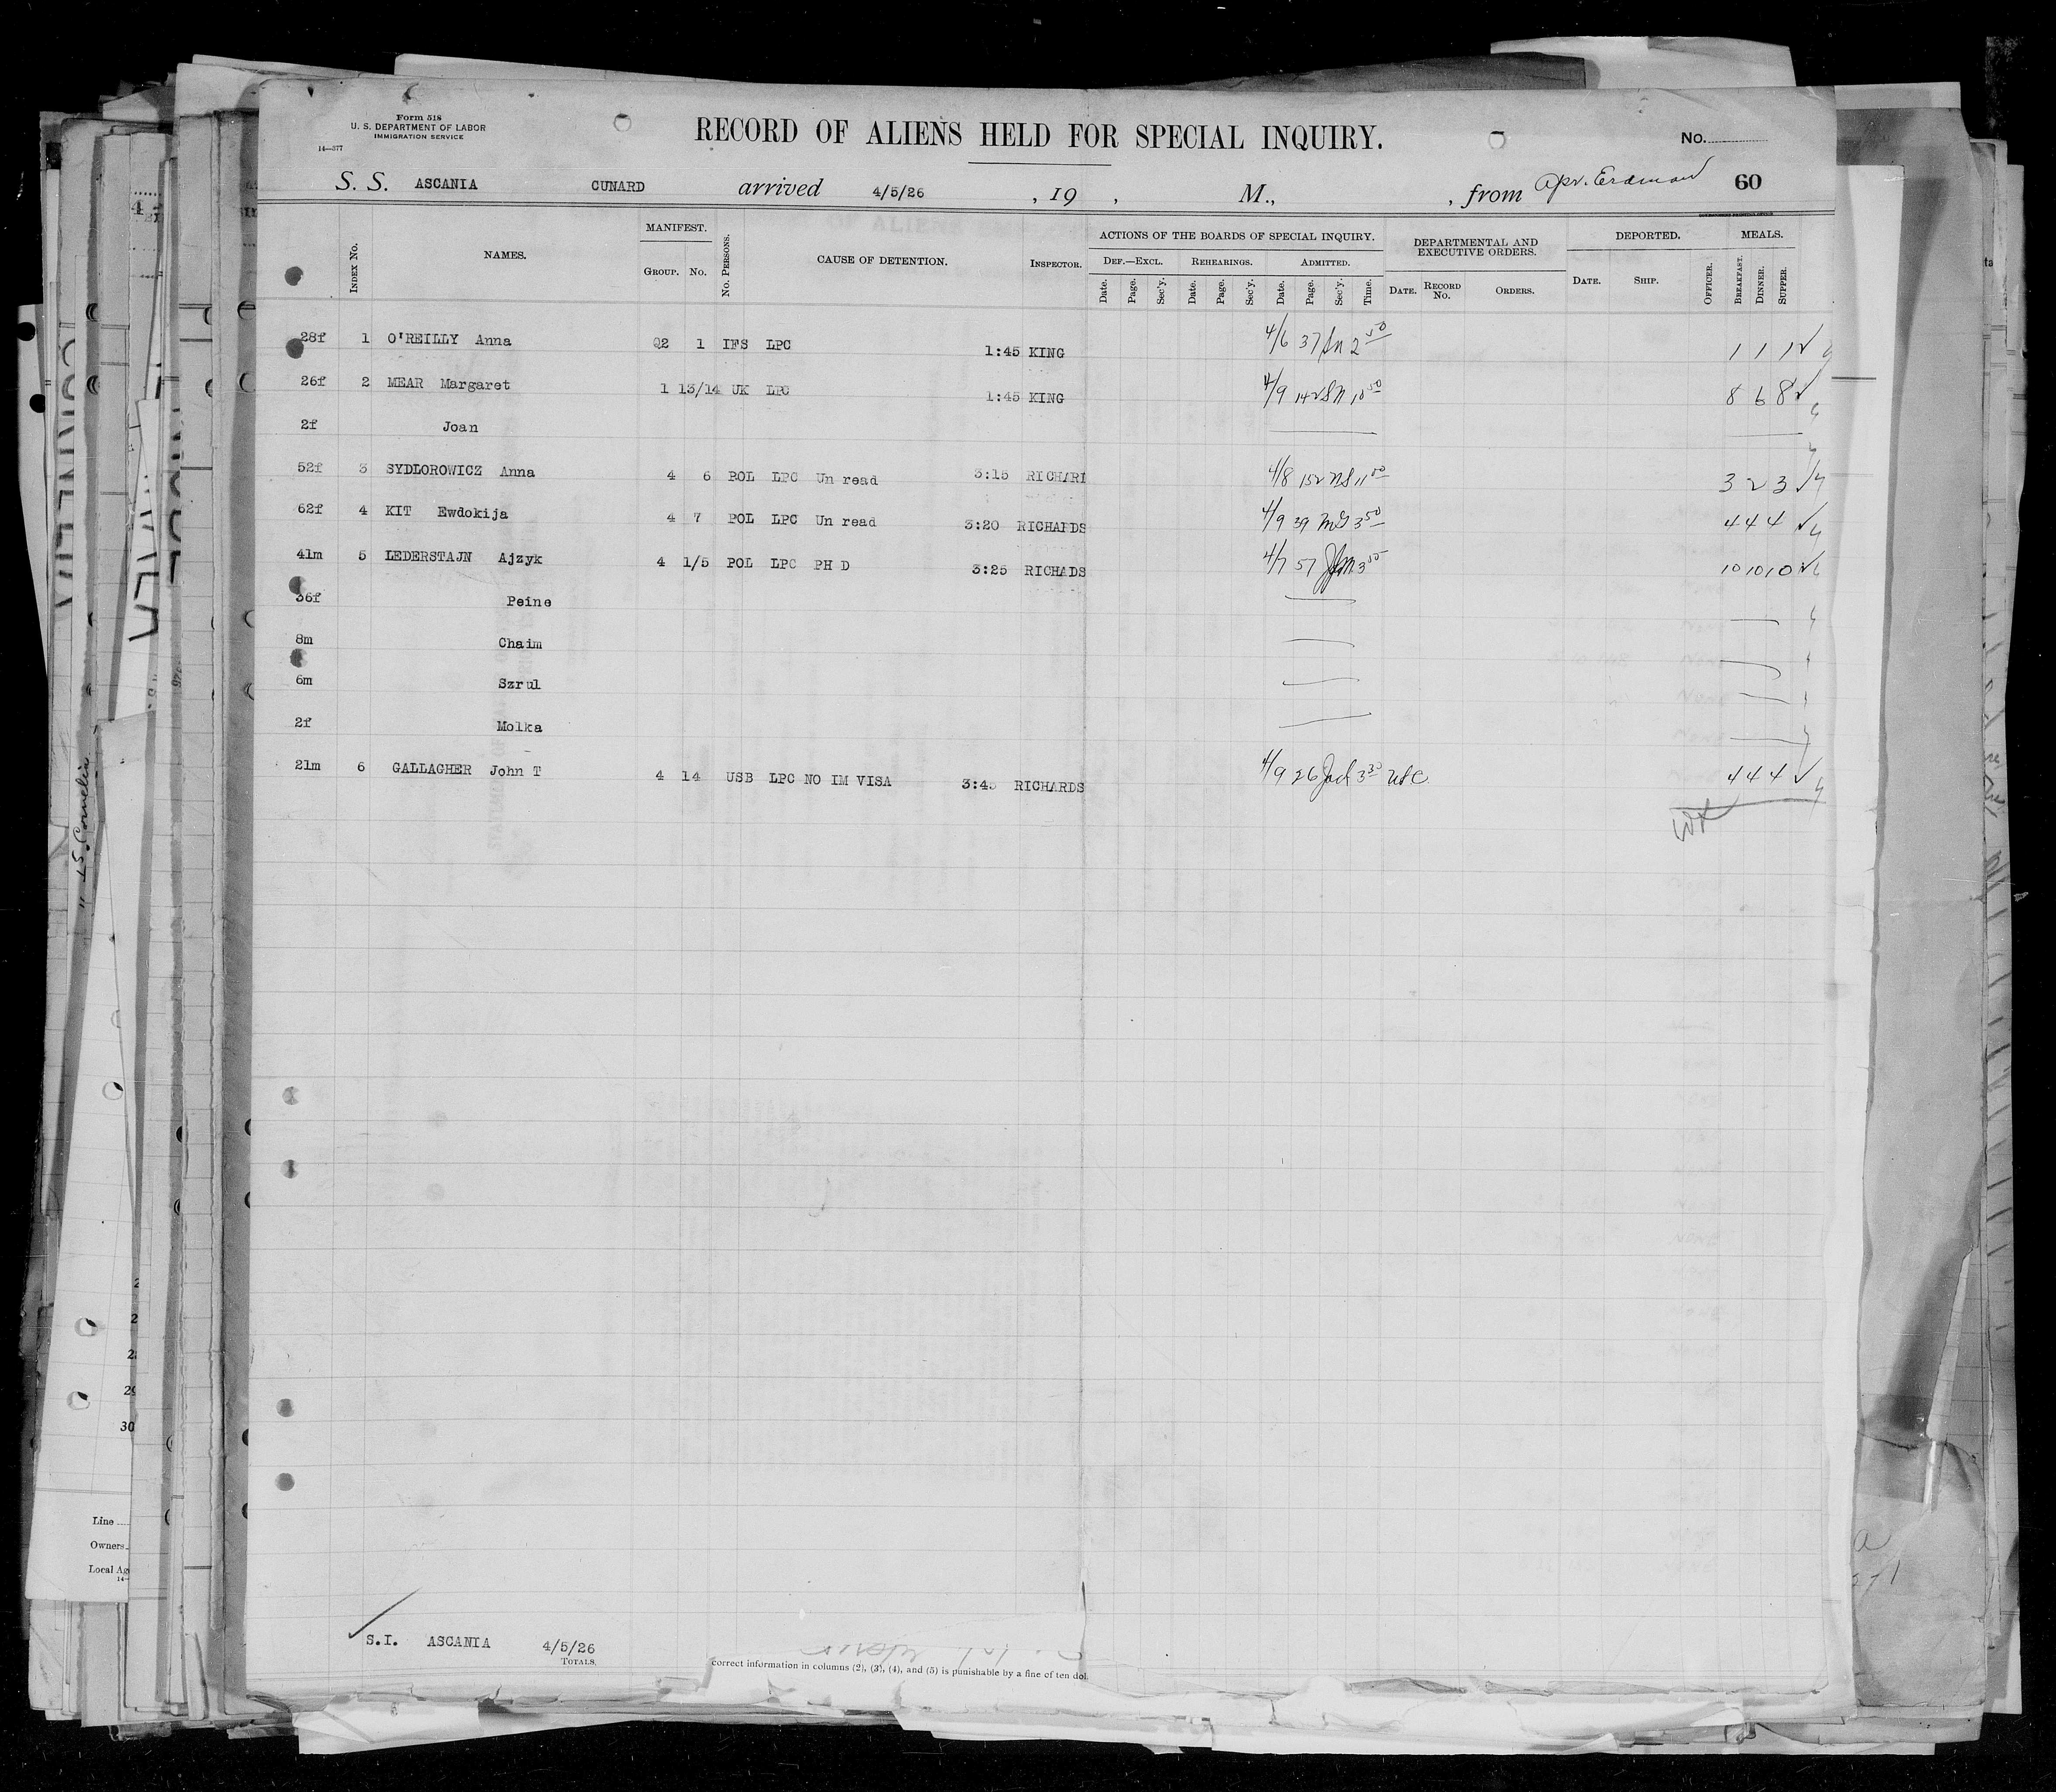 Form 518
U. S. DEPARTMENT OF LABOR
IMMIGRATION SERVICE
14—377
RECORD OF ALIENS HELD FOR SPECIAL INQUIRY.
No.
S. S. ASCANIA CUNARD arrived 4/5/26 , 19 , M., , from Apr. Erdman 60
INDEX NO. NAMES. MANIFEST. GROUP. NO. NO. PERSONS. CAUSE OF DETENTION. INSPECTOR.
ACTIONS OF THE BOARDS OF SPECIAL INQUIRY.
DEF.—EXCL. REHEARINGS. ADMITTED.
Date. Page. Sec'y. Date. Page. Sec'y. Date. Page. Sec'y. Time.
DEPARTMENTAL AND EXECUTIVE ORDERS.
DATE. RECORD NO. ORDERS.
DEPORTED.
DATE. SHIP. OFFICER.
MEALS.
BREAKFAST. DINNER. SUPPER.
28f 1 O'REILLY Anna Q2 1 IFS LPC 1:45 KING 4/6 37 2 50 1 1 1
26f 2 MEAR Margaret 1 13/14 UK LPC 1:45 KING 4/9 142 SM 10 50 8 6 8
2f Joan
52f 3 SYDLOROWICZ Anna 4 6 POL LPC Un read 3:15 RICHARI 4/8 152 NS 11 00 3 2 3
62f 4 KIT Ewdokija 4 7 POL LPC Un read 3:20 RICHARDS 4/9 39 3 50 4 4 4
41m 5 LEDERSTAJN Ajzyk 4 1/5 POL LPC PH D 3:25 RICHADS 4/7 57 3 10 10 10
36f Peine
8m Chaim
6m Szrul
2f Molka
21m 6 GALLAGHER John T 4 14 USB LPC NO IM VISA 3:45 RICHARDS 4/9 26 3 30 USC 4 4 4
S.I. ASCANIA 4/5/26
TOTALS.
correct information in columns (2), (3), (4), and (5) is punishable by a fine of ten dol
" LS. Cornelia
2
29
30
Line
Owners
Local Ag
14—